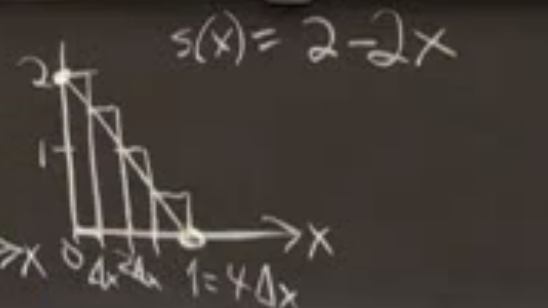 s(x) = 2 - 2x
2
1
x
>x 0 Δx 2Δx 1 = 4Δx